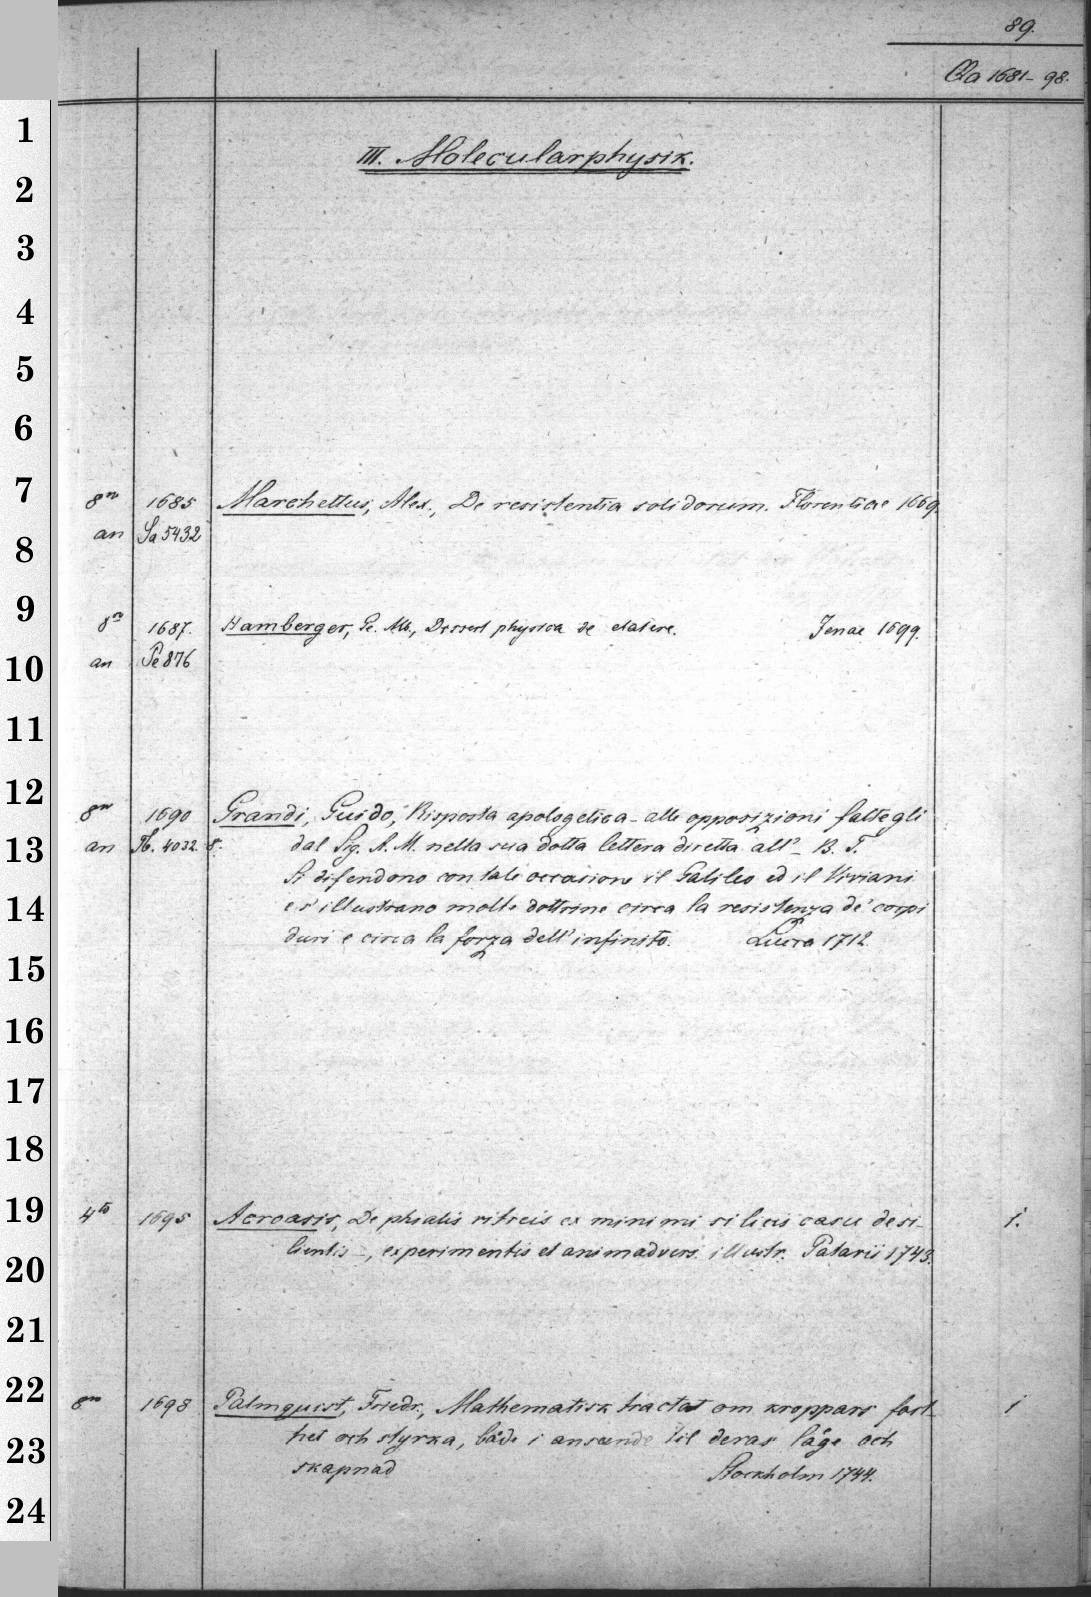 89.
Qa 1681-98.
III. Molecularphysik.
8° 1685 Marchettus, Alex., De resistentia solidorum. Florentiae 1669.
an Sa 5432
8° 1687. Hamberger, Ge. Alb., Dissert physica de elatere. Jenae 1699.
an Pe 876
8° 1690 Grandi, Guido, Risposta apologetica - alle opposizioni fattegli
an 4032 8. dal Sig. A. M. nella sua dotta lettera diretta all' - B. T.
Si difendono con tale occasione il Galileo ed il Viviani
e s'illustrano molte dottrine circa la resistenza de' corpi
duri e circa la forza dell' infinito. Lucca 1712.
4to 1695 Acroasis, De phialis vitreis ex minimi silicis casu desi-
lientis -, experimentis et animadvers. illustr. Patavii 1743. 1.
8° 1698 Palmquist, Friedr., Mathematisk tractat om kroppars fast- 1
het och styrka, både i anseende til deras läge och
skapnad Stockholm 1744.
1
2
3
4
5
6
7
8
9
10
11
12
13
14
15
16
17
18
19
20
21
22
23
24